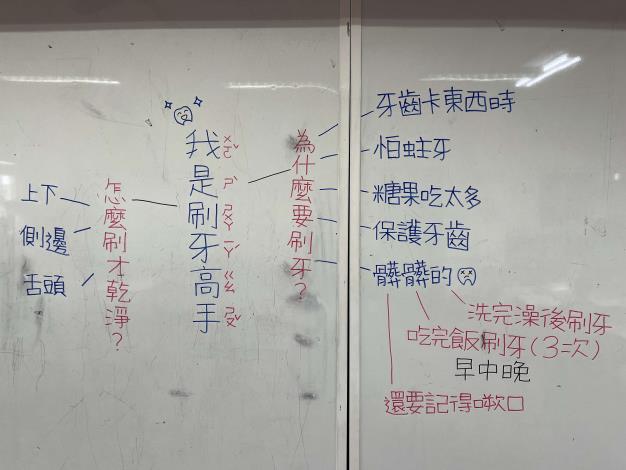 我是刷牙高手
ㄨㄛˇ ㄕˋ ㄕㄨㄚ ㄧㄚˊ ㄍㄠ ㄕㄡˇ
為什麼要刷牙？
牙齒卡東西時
怕蛀牙
糖果吃太多
保護牙齒
髒髒的
洗完澡後刷牙
吃完飯刷牙(3次)
早中晚
還要記得嗽口
怎麼刷才乾淨？
上下
側邊
舌頭